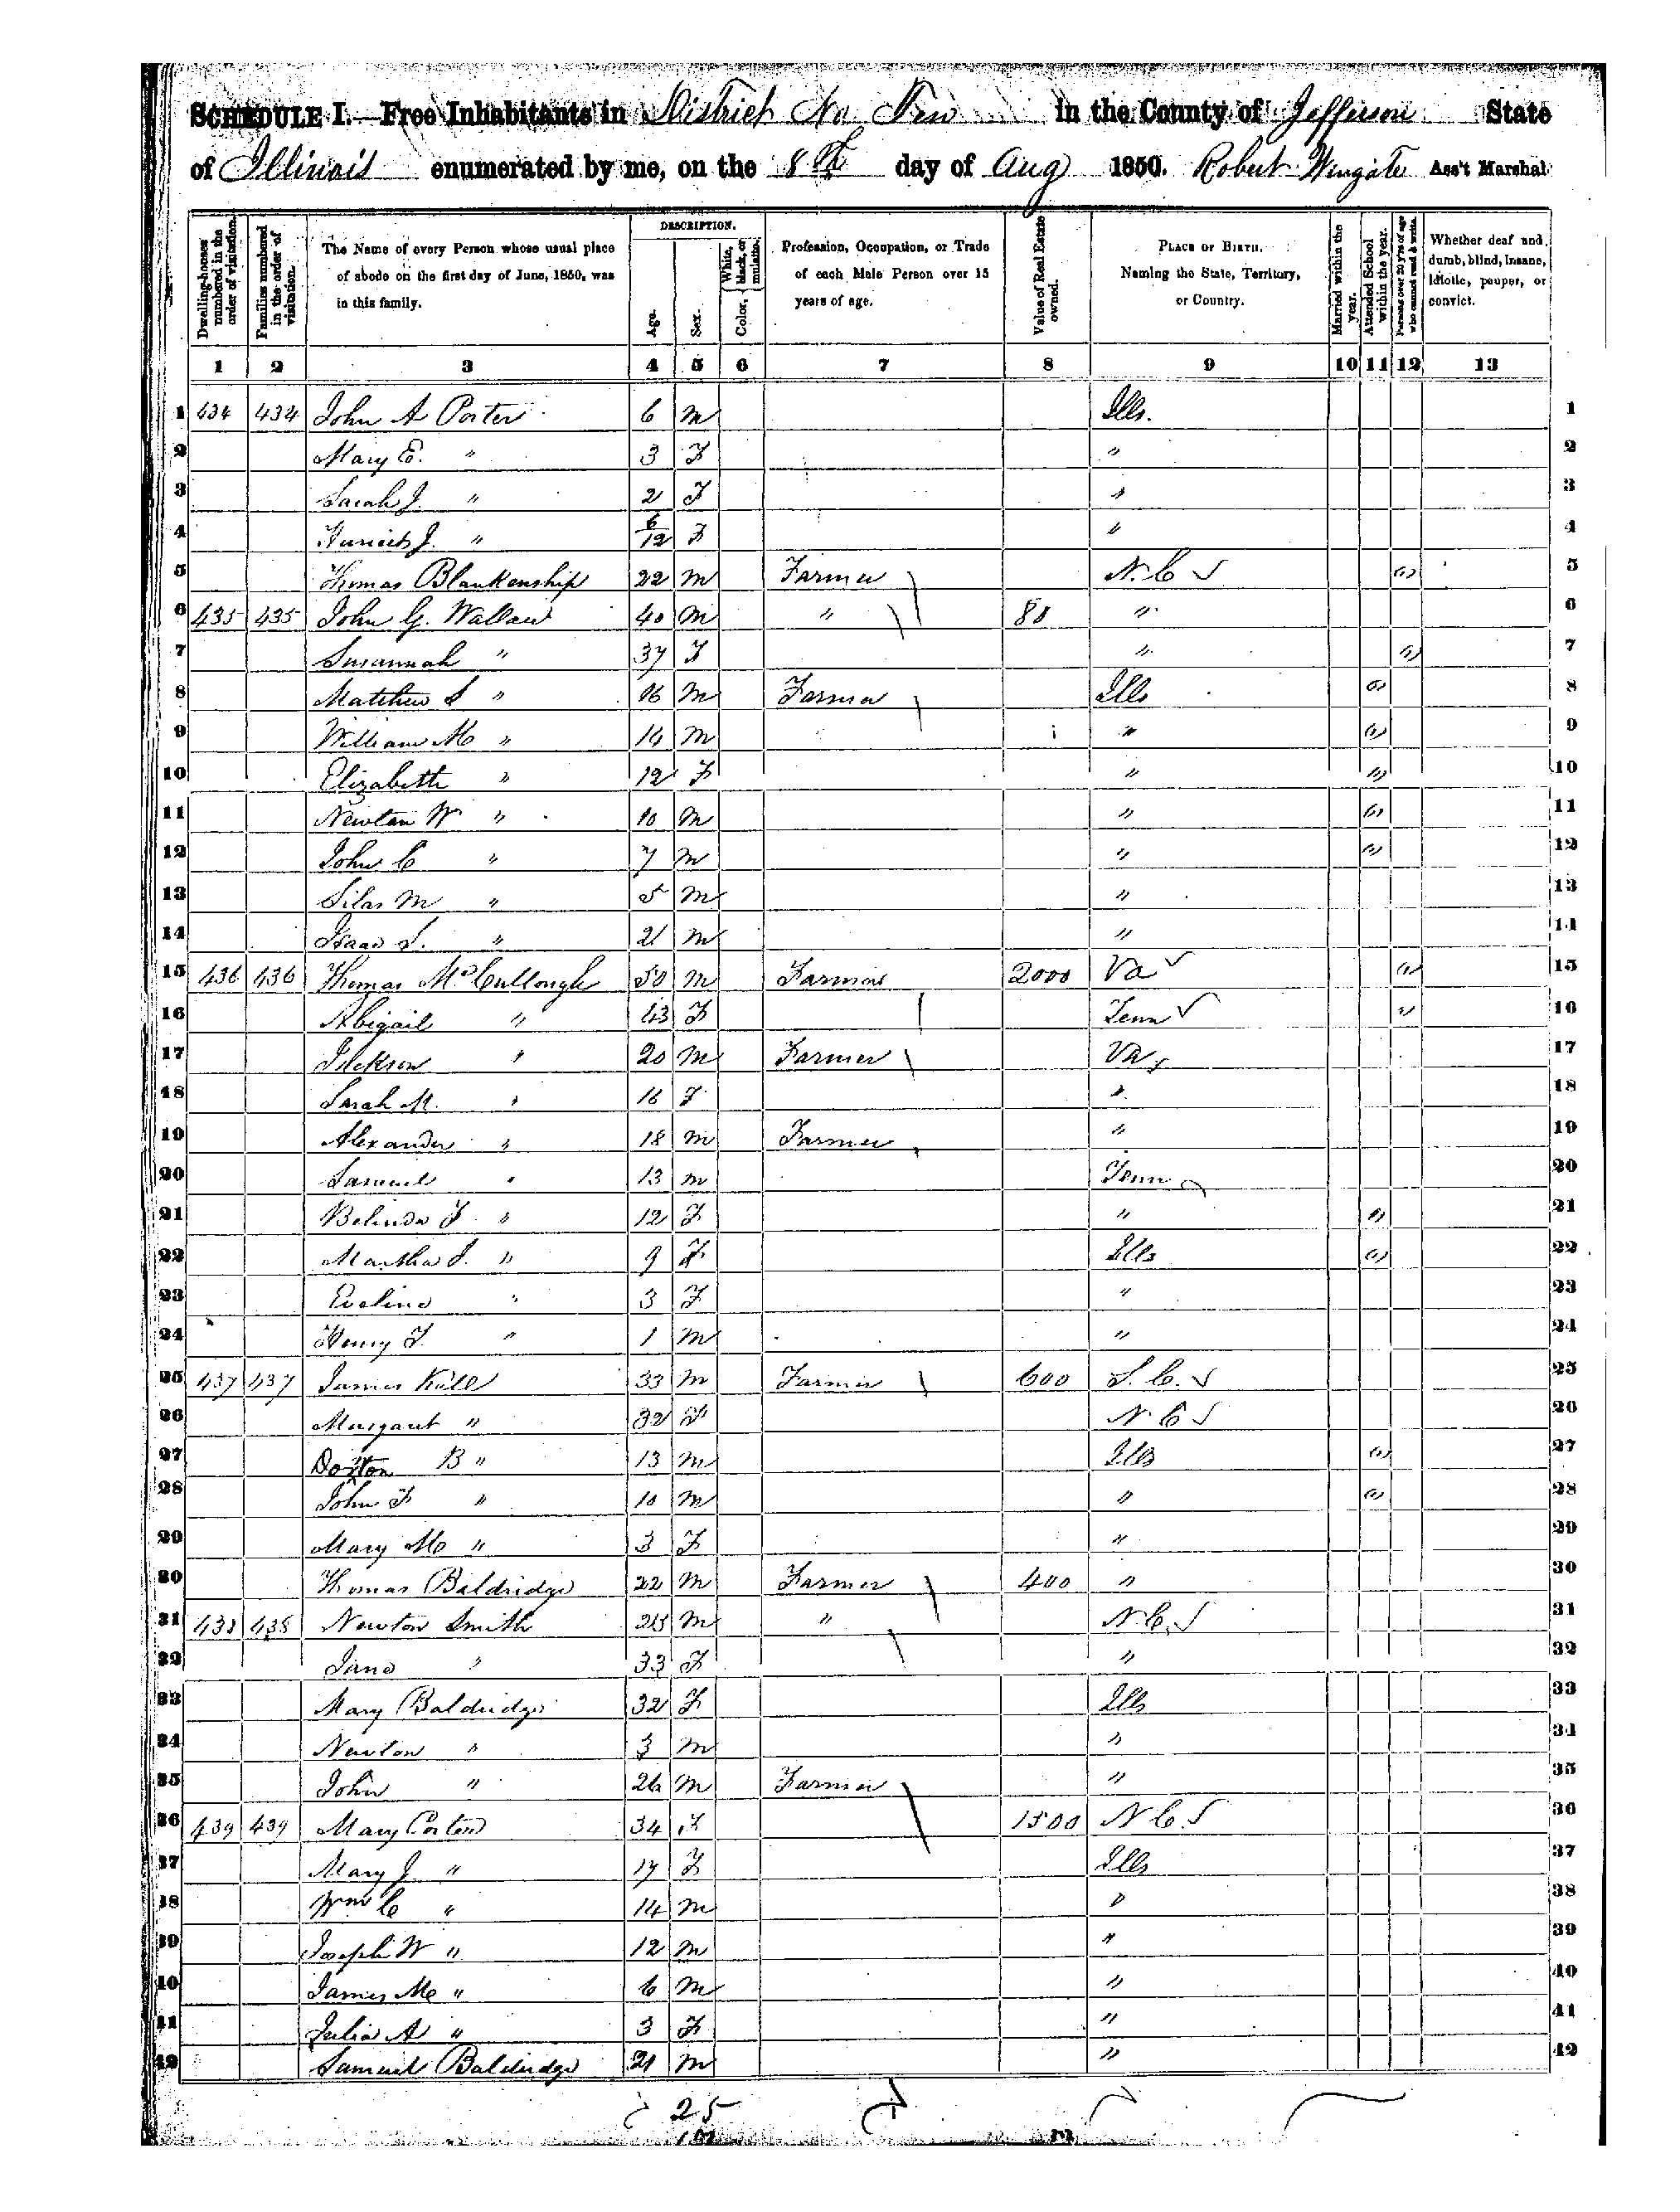 SCHEDULE I.—Free Inhabitants in District No Two in the County of Jefferson State
of Illinois enumerated by me, on the 8th day of Aug 1850. Robert Wingate Ass't Marshal
Dwelling-houses numbered in the order of visitation.
Families numbered in the order of visitation.
The Name of every Person whose usual place of abode on the first day of June, 1850, was in this family.
DESCRIPTION.
Age.
Sex.
Color, White, black, or mulatto.
Profession, Occupation, or Trade of each Male Person over 15 years of age.
Value of Real Estate owned.
PLACE OF BIRTH. Naming the State, Territory, or Country.
Married within the year.
Attended School within the year.
Persons over 20 y'rs of age who cannot read & write.
Whether deaf and dumb, blind, insane, idiotic, pauper, or convict.
1 2 3 4 5 6 7 8 9 10 11 12 13
1 434 434 John A Porter 6 m Ills. 1
2 Mary E. " 3 F " 2
3 Sarah J. " 2 F " 3
4 J. " 6/12 F " 4
5 Thomas Blankenship 22 m Farmer N. C " 5
6 435 435 John G. Wallace 40 m " 80 " 6
7 Susannah " 37 F " " 7
8 Matthew S " 16 m Farmer Ills " 8
9 William M " 14 m " " 9
10 Elizabeth " 12 F " " 10
11 Newton W " 10 m " " 11
12 John C " 7 m " " 12
13 Silas M " 5 m " 13
14 Isaac S. " 2 m " 14
15 436 436 Thomas McCullough 50 m Farmer 2000 Va " 15
16 Abigail " 43 F Tenn " 16
17 Jackson " 20 m Farmer Va 17
18 Sarah M. " 16 F " 18
19 Alexander " 18 m Farmer " 19
20 Samuel " 13 m Tenn 20
21 Belinda F " 12 F " " 21
22 Martha J. " 9 F Ills " 22
23 Eveline " 3 F " 23
24 Henry T. " 1 m " 24
25 437 437 James Kell 33 m Farmer 600 S. C. 25
26 Margaret " 32 F N C 26
27 B " 13 m Ills " 27
28 John F " 10 m " " 28
29 Mary M " 3 F " 29
30 Thomas Baldridge 22 m Farmer 400 " 30
31 438 438 Newton Smith 25 m " N. C. 31
32 Jane " 33 F " 32
33 Mary Baldridge 32 F Ills 33
34 Newton " 3 m " 34
35 John " 26 m Farmer " 35
36 439 439 Mary Porter 34 F 1500 N C. 36
37 Mary J " 17 F Ills 37
38 Wm C " 14 m " 38
39 Joseph W " 12 m " 39
40 James M " 6 m " 40
41 Julia A " 3 F " 41
42 Samuel Baldridge 21 m " 42
25